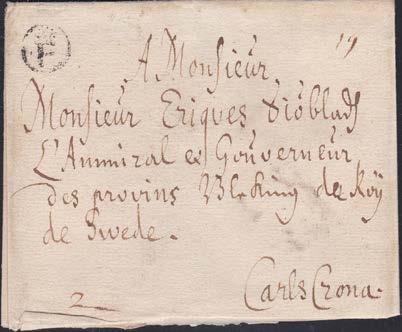 A Monsieur
Monsieur Eriques Siöblad
L'Ammiral es Gouverneur
des provins Bleking de Roÿ
de Swede.
Carls Crona.
2